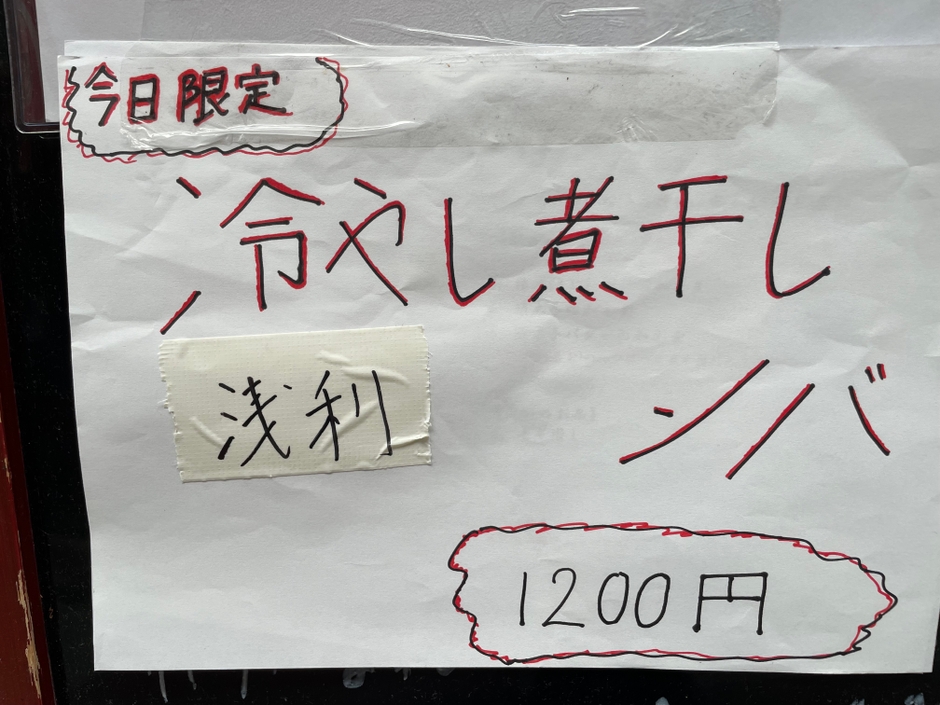 今日限定
冷やし煮干し
浅利
ソバ
1200円